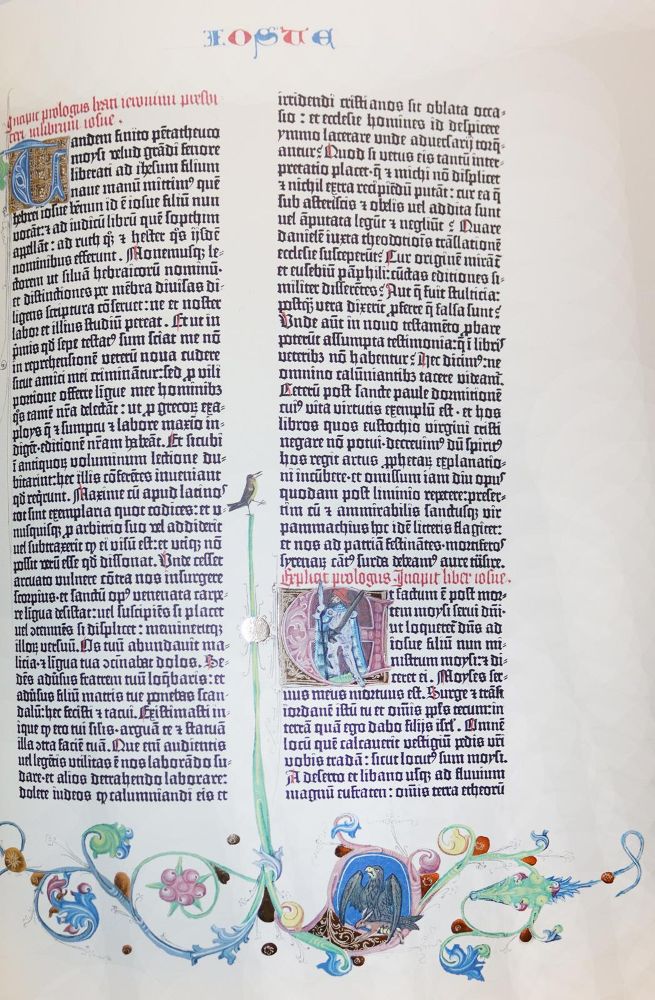 IOSUE
Incipit prologus beati ieronimi presbi
teri in librum iosue.
Tandem finito pētatheuco
moysi velud grādi fenore
liberati ad ihesum filium
naue manū mittim⁹ quē
hebrei iosue bennū id ē iosue filiū nun
vocāt: ⁊ ad iudicū librū quē sopthim
appellāt: ad ruth q̄ ⁊ hester q̄s ijsdē
nominibus efferunt. Monemusq; le-
ctorem ut siluā hebraicorū nominū·
et distinctiones per mēbra diuisas di-
ligens scriptura cōseruet: ne et noster
labor et illius studiū pereat. Et ut in
pīmis qd sepe testat⁹ sum sciat me nō
in reprehensionē veterū noua cudere
sicut amici mei criminātur: sed p vili
portione offerre līgue mee hominibꝫ
q̄s tamē nr̄a delectāt: ut p grecoꝝ exa-
ploys q̄ ⁊ sumptu ⁊ labore maxīo in-
digēt· editionē nr̄am habeāt. Et sicubi
ī antiquoꝝ voluminum lectione du-
bitarint: hec illis cōferētes inueniant
qd reqrunt. Maxime cū apud latinos
tot sint exemplaria quot codices: et v-
nusquisq; p arbitrio suo vel addiderit
uel subtraxerit qd ei visū est: et vtiq; nō
possit verū esse qd dissonat. Unde cesset
arcuato vulnere cōtra nos insurgere
scorpius· et sanctū op⁹ venenata carpe-
re līgua desistat: uel suscipiēs si placet
uel ɔtemnēs si displicet: memineritq;
illoꝝ versuū. Os tuū abundauit ma-
licia· ⁊ līgua tua ɔcinabat dolos. Se-
dēs aduersus fratrem tuū loq̄baris: et
aduersus filiū matris tue ponebas scan-
dalū: hec fecisti ⁊ tacui. Existimasti in-
ique qd ero tui silis· arguā te ⁊ statuā
illa ɔtra faciē tuā. Que eni audientis
uel legētis utilitas ē nos laborādo su-
dare· et alios detrahendo laborare:
dolere iudeos qd calumniandi eis et
irridendi cristianos sit oblata occa-
sio: et ecclesie homines id despicere
ymmo lacerare vnde aduersarij torq-
antur? Quod si vetus eis tantū inter-
pretatio placet· q̄ ⁊ michi nō displicet
⁊ nichil extra recipiēdū putāt: cur ea q̄
sub asteriscis ⁊ obelis uel addita sunt
uel āputata legūt ⁊ negligūt? Quare
danielē iuxta theodotiōis trāslationē
ecclesie susceperūt? Cur originē mirāt
et eusebiū pāphili: cūctas editiones si-
militer disserētes? Aut q̄ fuit stulticia:
postq̄ vera dixerīt pferre q̄ falsa sunt?
Unde aūt in nouo testamēto pbare
poterūt assumpta testimonia: q̄ ī libris
veteribꝫ nō habentur? Hec dicim⁹: ne
omnino calūniantibꝫ tacere videamur.
Ceterū post sancte paule dormitionē
cui⁹ vita virtutis exemplū est· et hos
libros quos eustochio virgini cristi
negare nō potui· decreuim⁹ dū spiritus
hos regit artus pphetaꝝ explanatio-
ni incūbere· et omissum iam diu opus
quodam post liminio repetere: preser-
tim cū ⁊ ammirabilis sanctusq; vir
pammachius hoc idē litteris flagitet:
et nos ad patriā festinātes· mortiferos
syrenaꝝ cātus surda debeamus aure trāsire.
Explicit prologus Incipit liber iosue.
Et factum ē post mor-
tem moysi serui dn̄i·
ut loqueretur dn̄s ad
iosue filiū nun mi-
nistrum moysi: ⁊ di-
ceret ei. Moyses ser-
uus meus mortuus est. Surge ⁊ trāsi
iordanē istū tu et omnis pp̄s tecum: in
terrā quā ego dabo filijs isrl̄. Omnē
locū quē calcauerit vestigiū pedis vr̄i
vobis tradā: sicut locut⁹ sum moysi.
A deserto et libano usq; ad fluuium
magnū eufraten: omnis terra etheorū